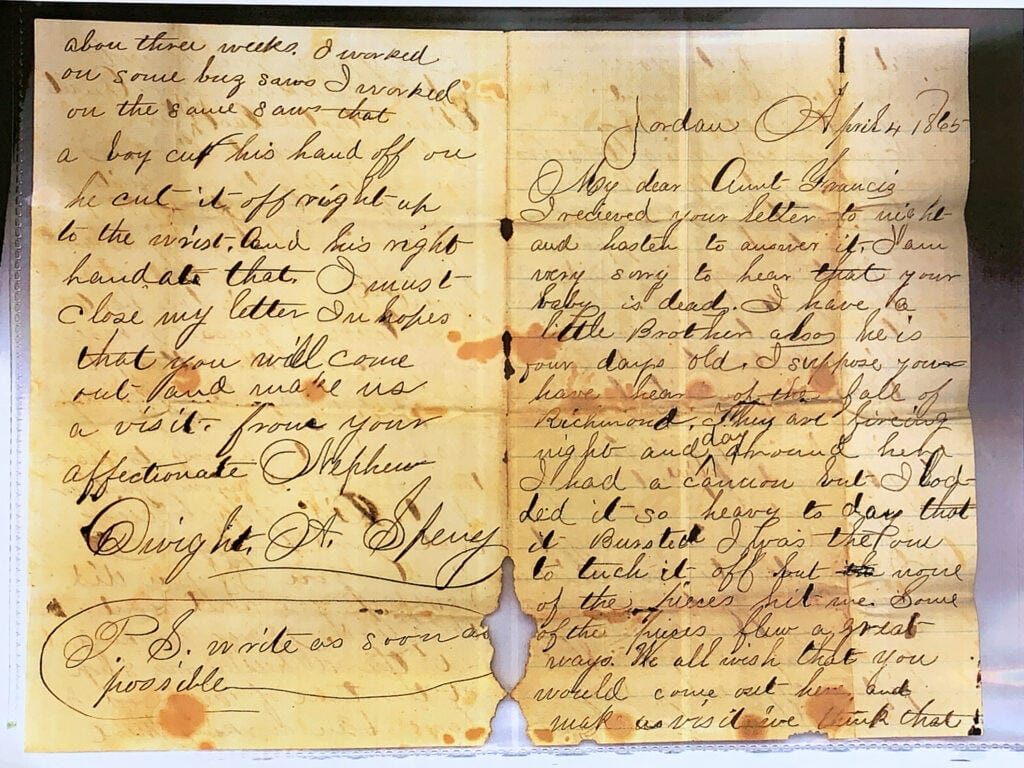 Jordan April 4 1865
My dear Aunt Francis
I recieved your letter to night
and hasten to answer it. I am
very sorry to hear that your
baby is dead. I have a
little Brother also he is
four days old. I suppose you
have hear of the fall of
Richmond. They are fireing
night and day around here
I had a cannon but I lod-
ded it so heavy to day that
it Bursted I was the one
to tuch it off but none
of the pieces hit me. Some
of the pieces flew a great
ways. We all wish that you
would come out here and
mak us visit we think that
abou three weeks. I worked
on some buz saws I worked
on the same saw that
a boy cut his hand off on
he cut it off right up
to the wrist. And his right
hand at that. I must
close my letter In hopes
that you will come
out and make us
a visit. from your
affectionate Nephew
Dwight. A. Spery
P. S. write as soon as
possible